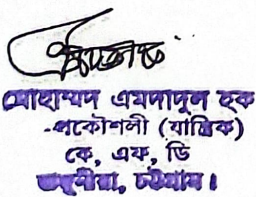 মোহাম্মদ এমদাদুল হক
-প্রকৌশলী (যান্ত্রিক)
কে, এফ, ডি
চট্টগ্রাম।